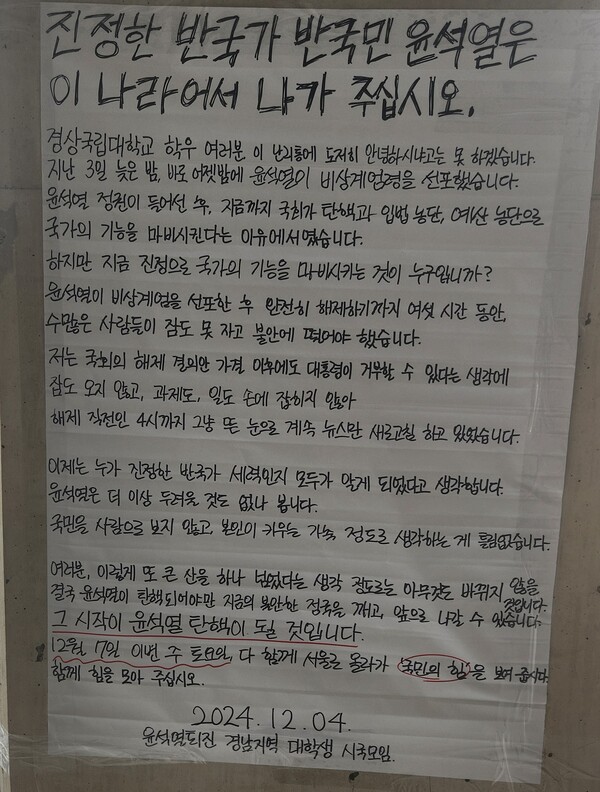 진정한 반국가 반국민 윤석열은
이 나라에서 나가 주십시오.
경상국립대학교 학우 여러분 이 난리통에 도저히 안녕하시냐고는 못 하겠습니다.
지난 3일 늦은 밤, 바로 어젯밤에 윤석열이 비상계엄령을 선포했습니다.
윤석열 정권이 들어선 후, 지금까지 국회가 탄핵과 입법 농단, 예산 농단으로
국가의 기능을 마비시킨다는 이유에서였습니다.
하지만 지금 진정으로 국가의 기능을 마비시키는 것이 누구입니까?
윤석열이 비상계엄을 선포한 후 완전히 해제하기까지 여섯 시간 동안,
수많은 사람들이 잠도 못 자고 불안에 떨어야 했습니다.
저는 국회의 해제 결의안 가결 이후에도 대통령이 거부할 수 있다는 생각에
잠도 오지 않고, 과제도, 일도 손에 잡히지 않아
해제 직전인 4시까지 그냥 뜬 눈으로 계속 뉴스만 새로고침 하고 있었습니다.
이제는 누가 진정한 반국가 세력인지 모두가 알게 되었다고 생각합니다.
윤석열은 더 이상 두려울 것도 없나 봅니다.
국민을 사람으로 보지 않고, 본인이 키우는 가축, 정도로 생각하는 게 틀림없습니다.
여러분, 이렇게 또 큰 산을 하나 넘었다는 생각 정도로는 아무것도 바뀌지 않을 것입니다.
결국 윤석열이 탄핵되어야만 지금의 불안한 정국을 깨고, 앞으로 나갈 수 있습니다.
그 시작이 윤석열 탄핵이 될 것입니다.
12월 7일 이번 주 토요일, 다 함께 서울로 올라가 '국민의 힘'을 보여 줍시다.
함께 힘을 모아 주십시오.
2024.12.04.
윤석열퇴진 경남지역 대학생 시국모임.